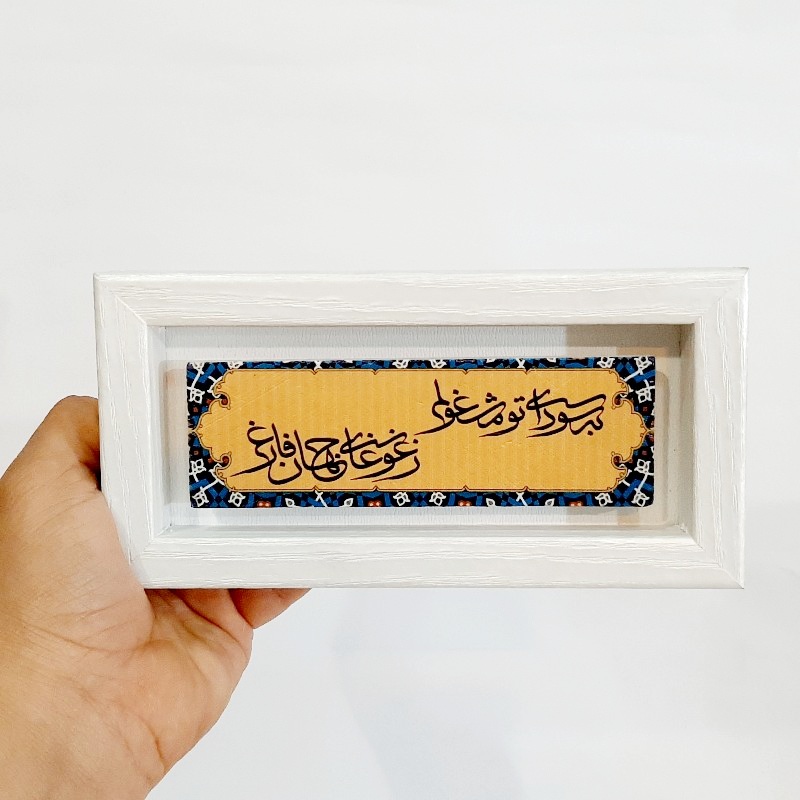 به سودای تو مشغولم
ز غوغای جهان فارغ